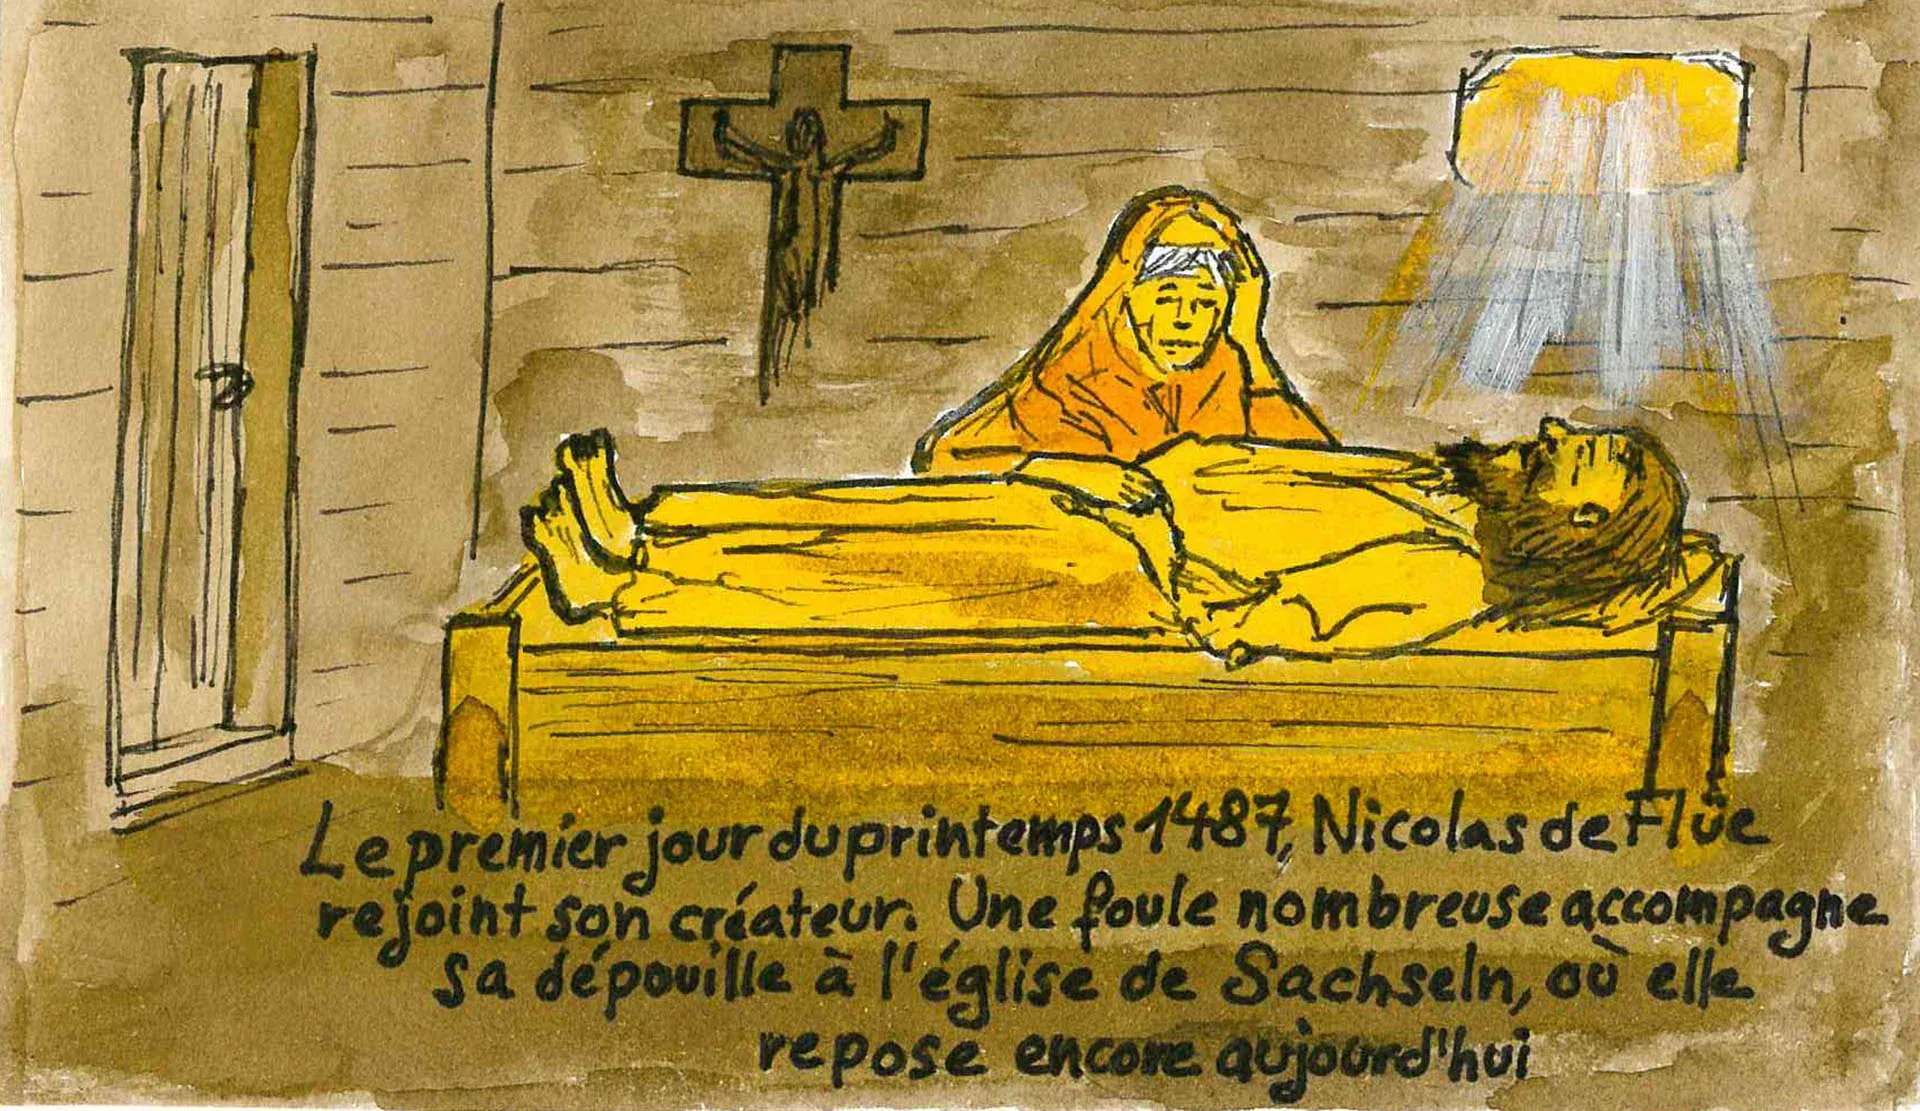 Le premier jour du printemps 1487, Nicolas de Flüe
rejoint son créateur. Une foule nombreuse accompagne
sa dépouille à l'église de Sachseln, où elle
repose encore aujourd'hui